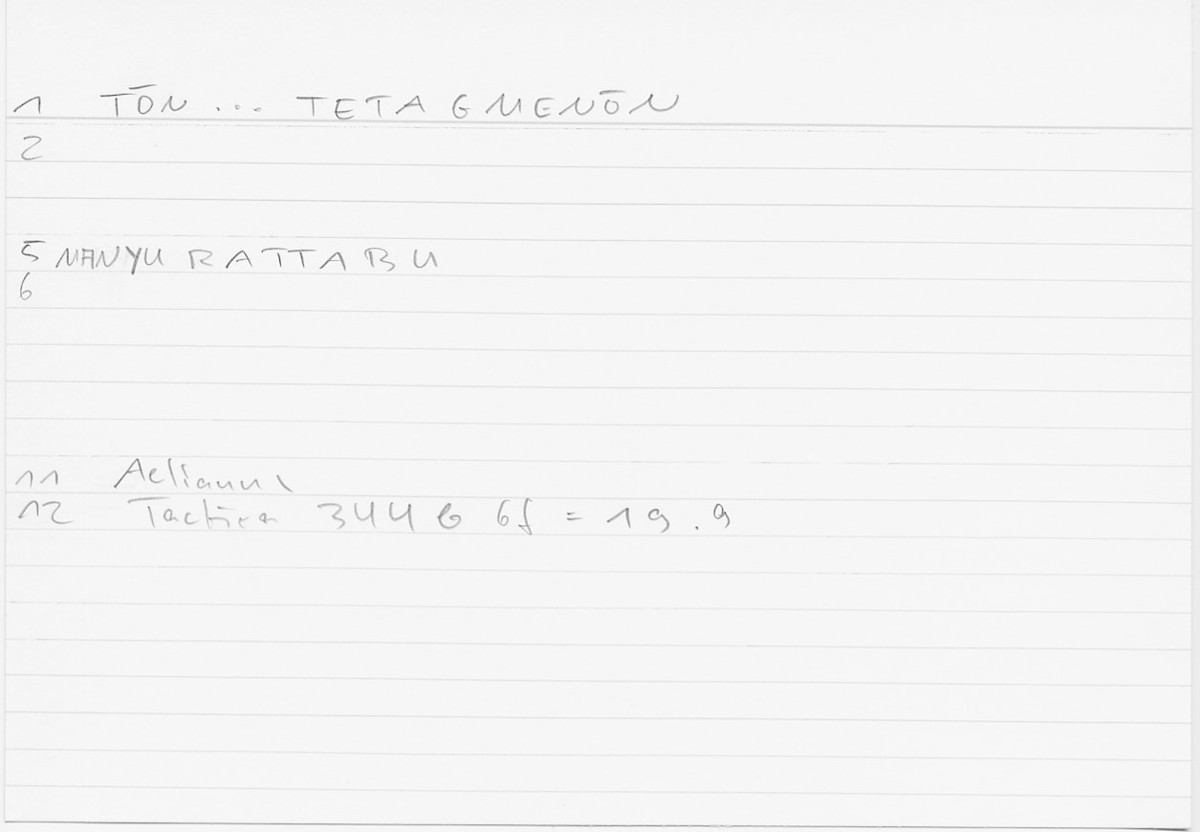 1 TŌN ... TETAGMENŌN
2
5 MANYU RATTABU
6
11 Aelianus
12 Tactica 344 6 6f = 19.9